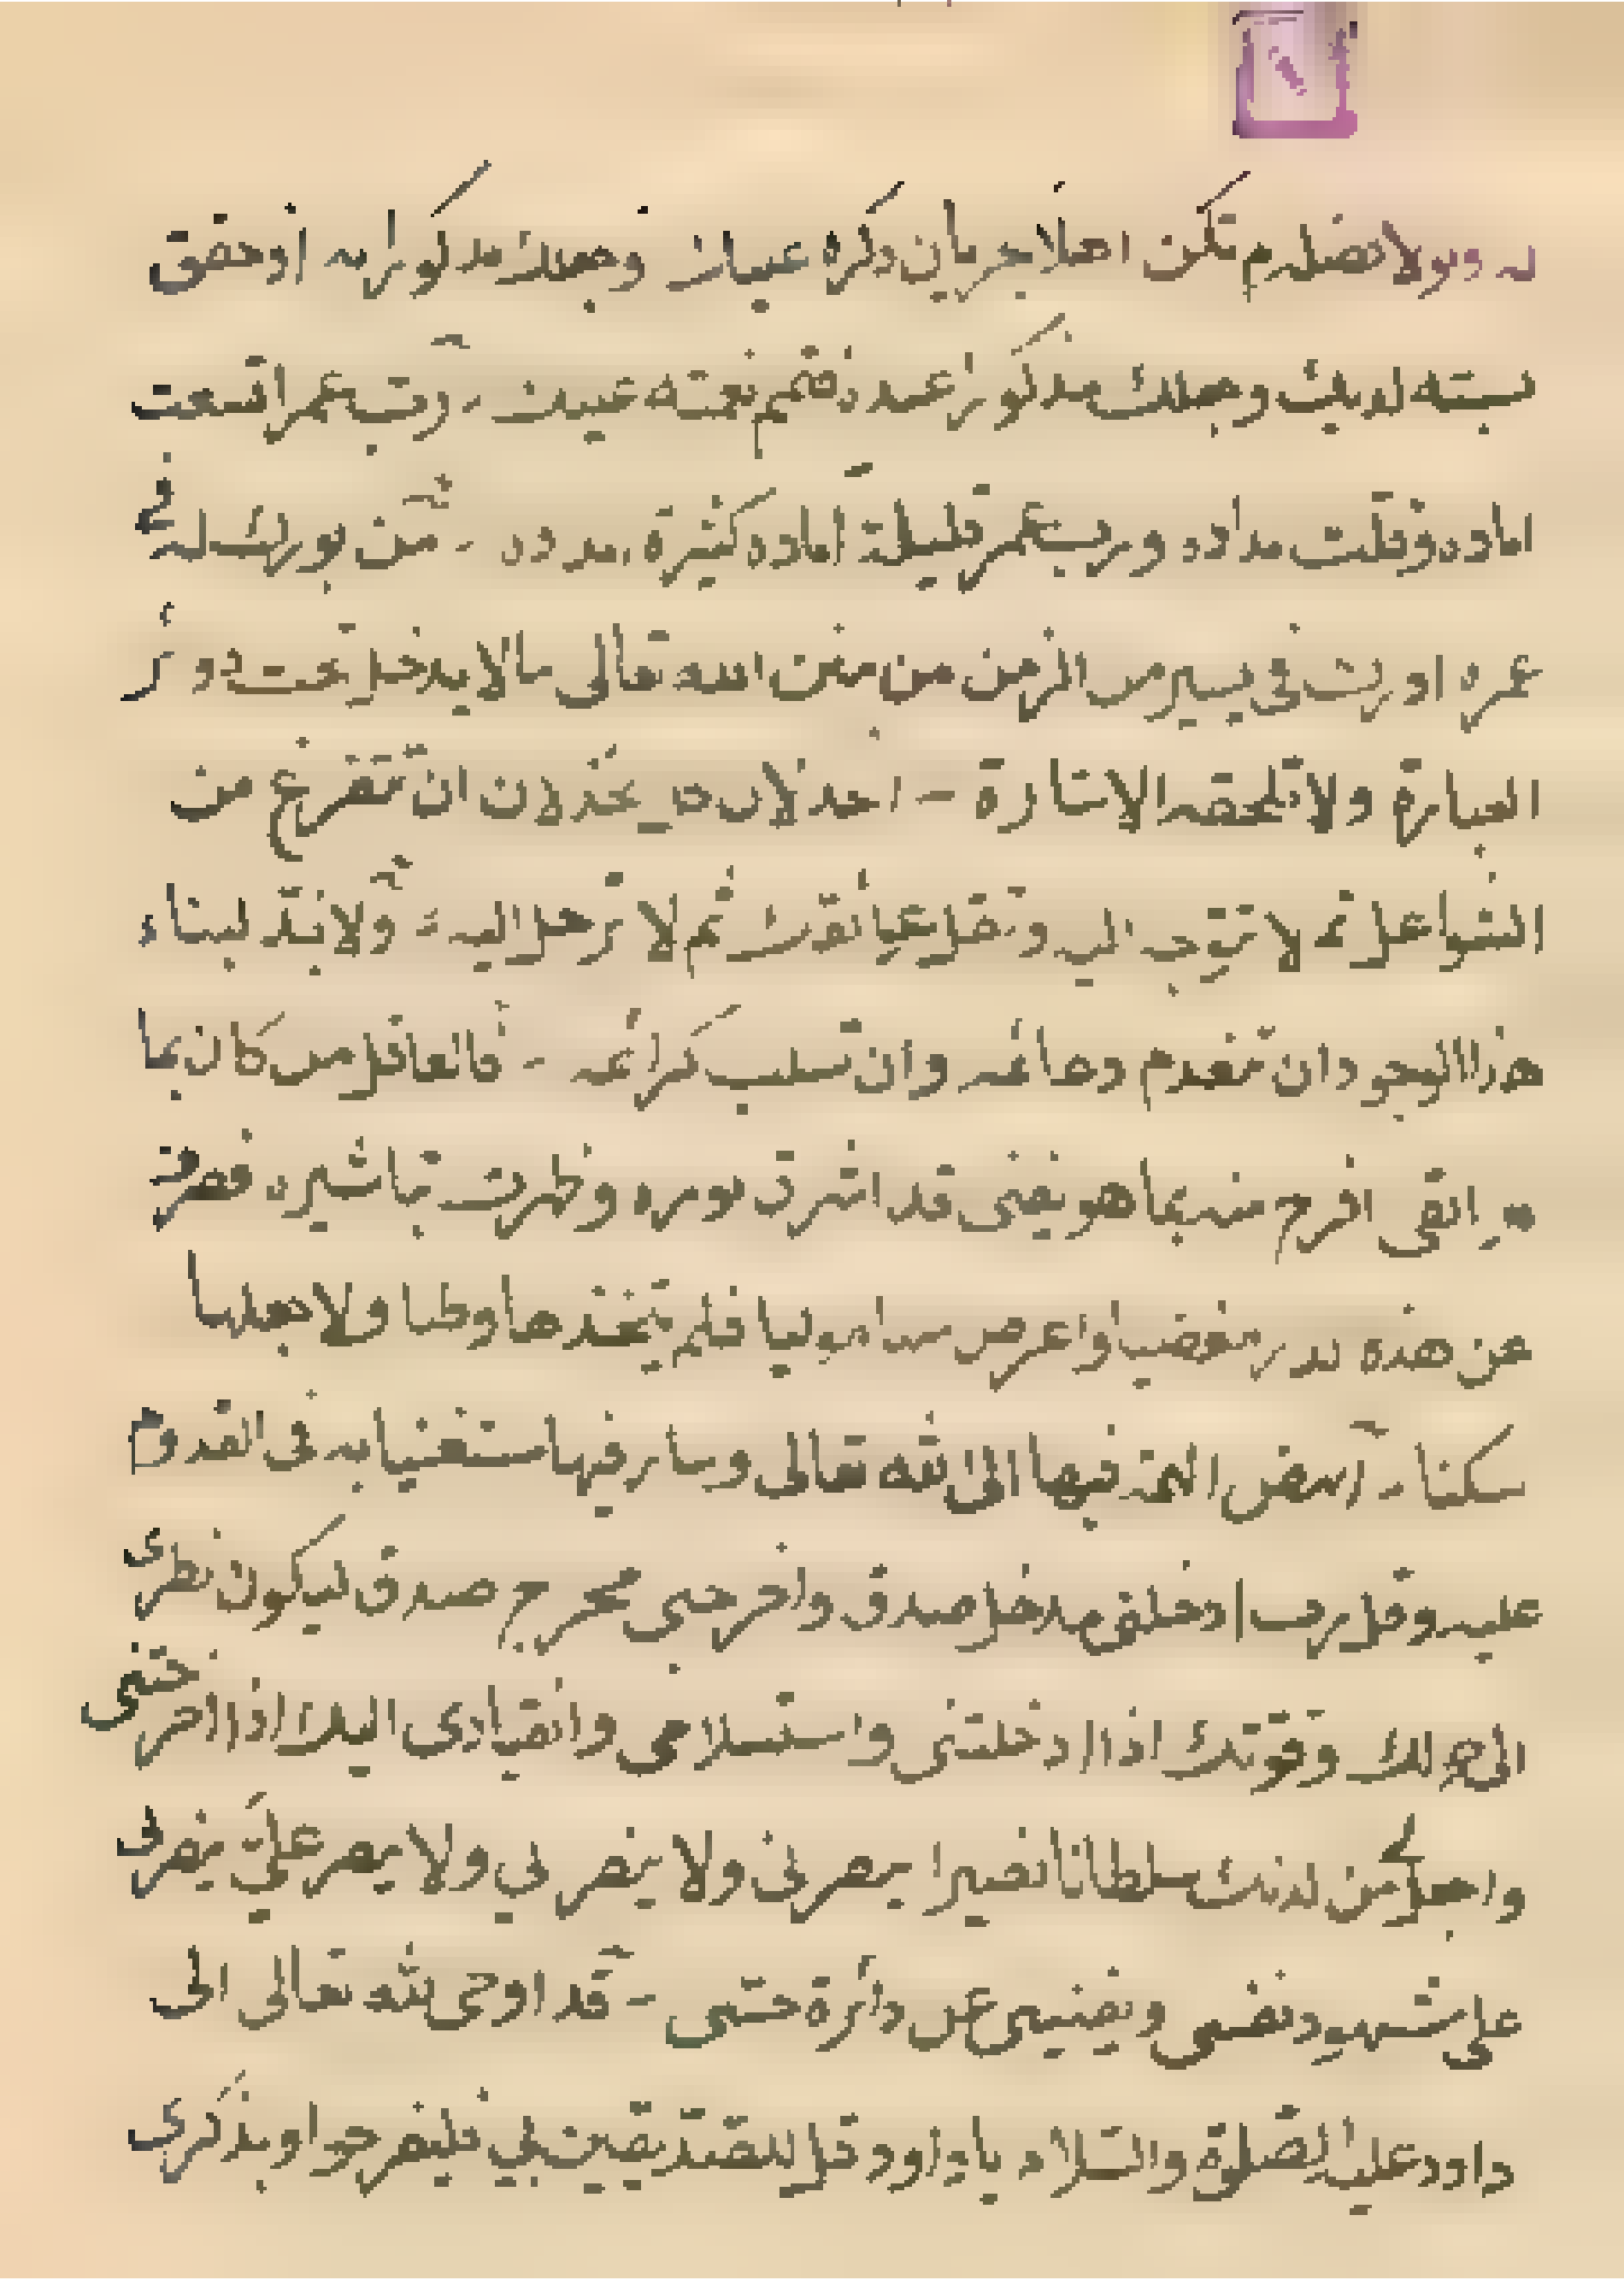 له ولولا فضله لم تكن اهلا لجريان ذكره عليك وجعلك مذكورا به اذ حقق
نسبته لديك وجعلك مذكورا عنده فتمم نعمته عليك رب عمر اتسعت
اماده وقلت امداده ورب عمر قليلة اماده كثيرة امداده من بورك له في
عمره ادرك في يسير من الزمن من منن الله تعالى ما لا يدخل تحت دوائر
العبارة ولا تلحقه الاشارة الخذلان كل الخذلان ان تتفرغ من
الشواغل ثم لا تتوجه اليه وتقل عوائقك ثم لا ترحل اليه ولا بد لبناء
هذا الوجود ان تنهدم دعائمه وان تسلب كرائمه فالعاقل من كان بما
هو ابقى افرح منه بما هو يفنى قد اشرق نوره وظهرت تباشيره فصدف
عن هذه الدار مغضيا واعرض عنها موليا فلم يتخذها وطنا ولا جعلها
سكنا انهض الهمة فيها الى الله تعالى وسار فيها مستعينا به في القدوم
عليه وقل رب ادخلني مدخل صدق واخرجني مخرج صدق ليكون نظري
الى حولك وقوتك اذا ادخلتني واستسلامي وانقيادي اليك اذا اخرجتني
واجعل لي من لدنك سلطانا نصيرا ينصرني وينصر بي ولا ينصر علي ينصرني
على شهود نفسي ويفنيني عن دائرة حسي قد اوحى الله تعالى الى
داود عليه الصلوة والسلام يا داود قل للصديقين بي فليفرحوا وبذكري